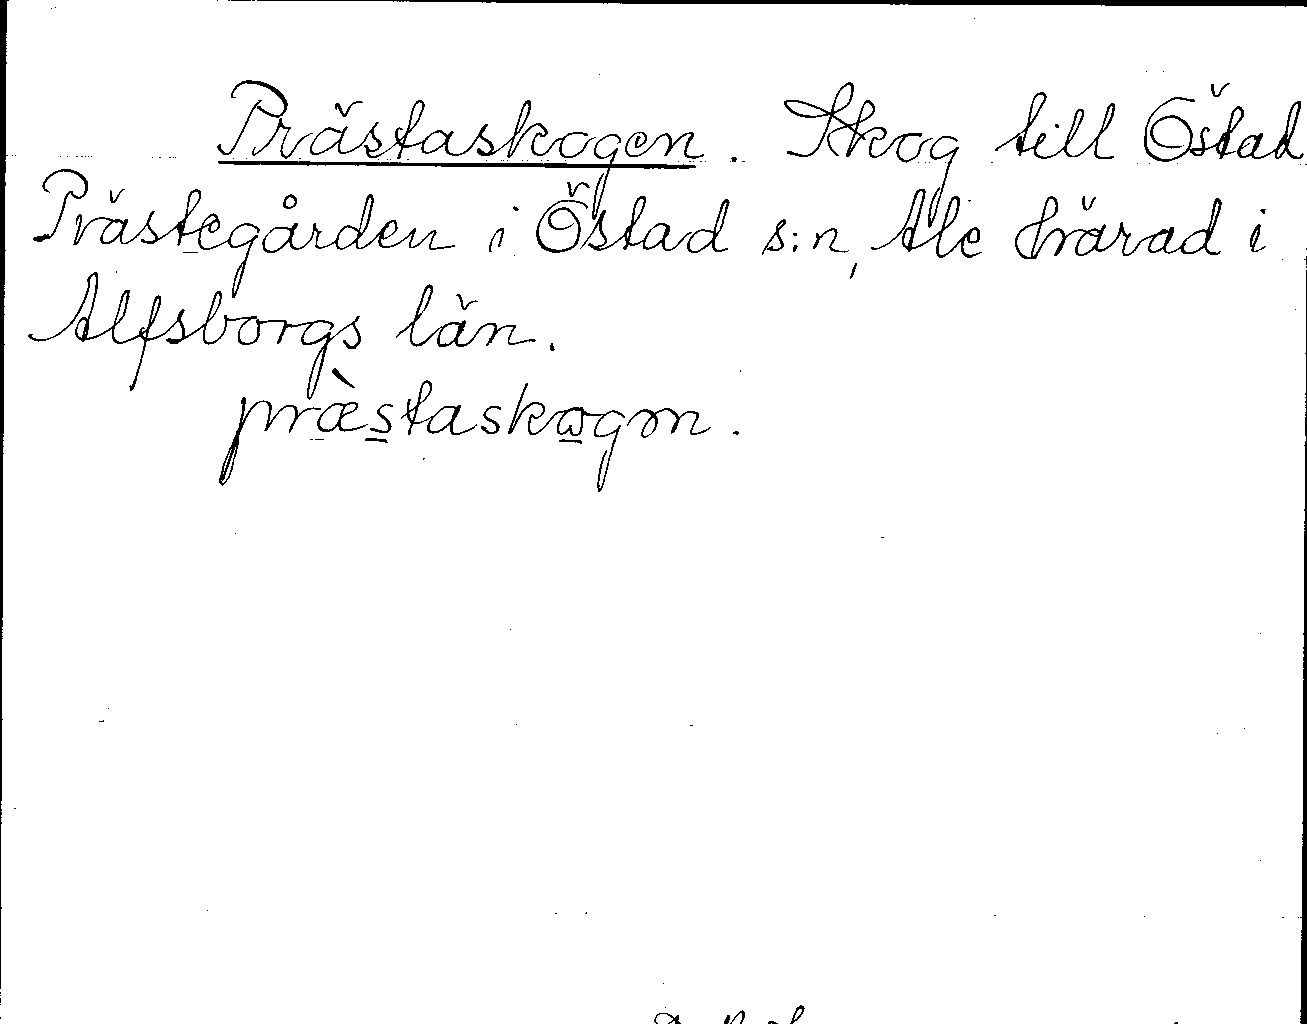 Prästaskogen. Skog till Östad
Prästegården i Östad s:n, Ale härad i
Älfsborgs län.
præ̀staskogen.